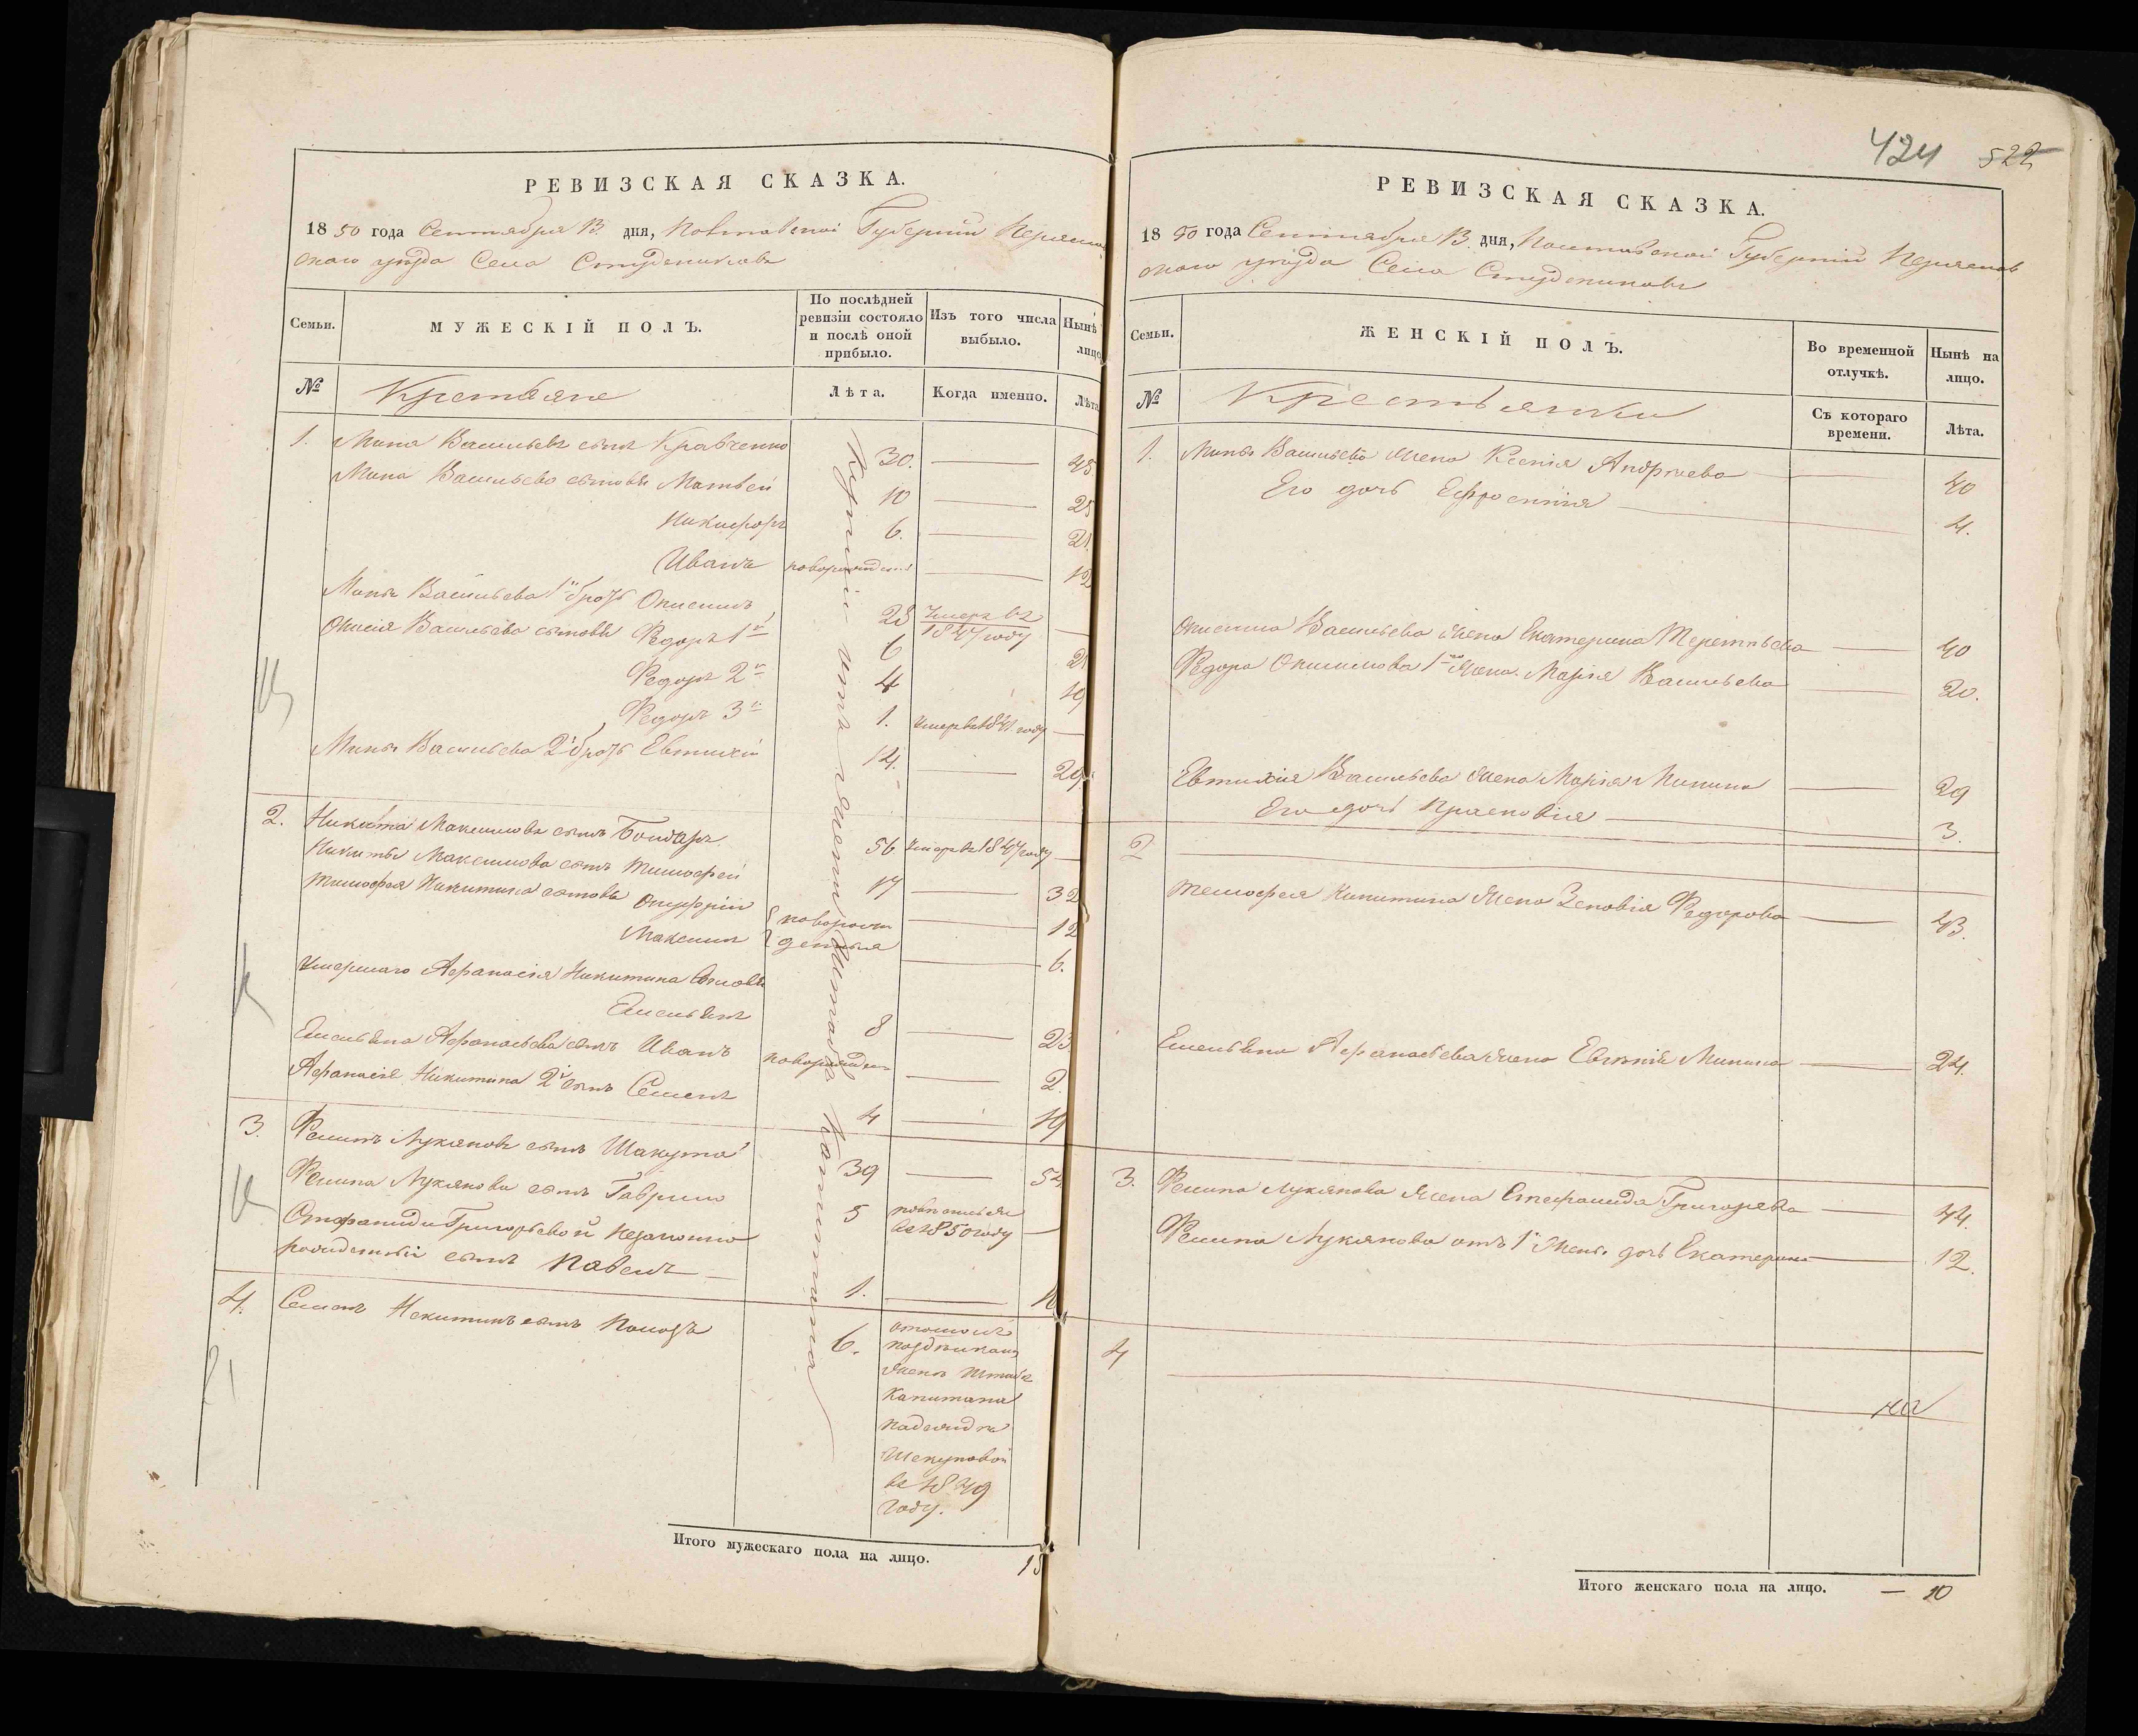 РЕВИЗСКАЯ СКАЗКА.
1850 года Сентября дня, Полтавской Губернии
скаго уѣзда Села Студениковъ
Семьи.
МУЖЕСКІЙ ПОЛЪ.
По послѣдней ревизіи состояло и послѣ оной прибыло.
Изъ того числа выбыло.
Нынѣ лицо
№
Крестьяне
Лѣта.
Когда именно.
Лѣта
1. Мина Васильевъ сынъ Кравченко 30. 45
Мина Васильева сыновья Матвѣй 10 25
Никифоръ 6. 21.
Иванъ новорожденъ 12
Мины Васильева 1й братъ Онисимъ 28 Умеръ въ 1847 году
Онисима Васильева сыновья Федоръ 1й 6 21
Федоръ 2й 4 19
Федоръ 3й 1. Умеръ въ 1841 году
Мины Васильева 2й братъ Евтихій 14. 29.
2. Никита Максимовъ сынъ Бондарь 56 Умеръ въ 1847 году
Никиты Максимова сынъ Тимофей 17 32
Тимофея Никитина сыновья Онуфрій новорож 12
Максимъ денныя 6.
Умершаго Афанасія Никитина сыновья
Емельянъ 8 23.
Емельяна Афанасьева сынъ Иванъ новорожден 2.
Афанасія Никитина 2й сынъ Семенъ 4 19
3. Филипъ Лукяновъ сынъ Шакута 39 54.
Филипа Лукянова сынъ Гаврило 5 въ 1850 году
Стефаниды Григорьевой незаконно
рожденный сынъ Павелъ 1.
4. Семенъ Никитинъ сынъ 6. отошолъ
женѣ Штабсъ
Капитана
Надежды
въ 1849
году.
Купній имъ Штабсъ Капитана
Итого мужескаго пола на лицо. 15
424 522
РЕВИЗСКАЯ СКАЗКА.
1850 года Сентября дня, Полтавской Губерніи
скаго уѣзда Села Студениковъ
Семьи.
ЖЕНСКІЙ ПОЛЪ.
Во временной отлучкѣ.
Нынѣ на лицо.
№
Крестьянки
Съ котораго времени.
Лѣта.
1. Мины Васильева жена Ксенія Андрѣева 40
Его дочь Ефросинія 4.
Онисима Васильева жена Екатерина Терентьева 40
Федора Онисимова 1го жена Марія Васильева 20.
Евтихія Васильева жена Марія Минина 29
Его дочь Прасковія 3.
2
Тимофея Никитина жена Зеновія Федорова 43.
Емельяна Афанасьева жена Евгенія Минина 24.
3. Филипа Лукянова жена Стефанида Григорьева 44.
Филипа Лукянова отъ 1й жены дочь Екатерина 12.
4
Итого женскаго пола на лицо. — 10